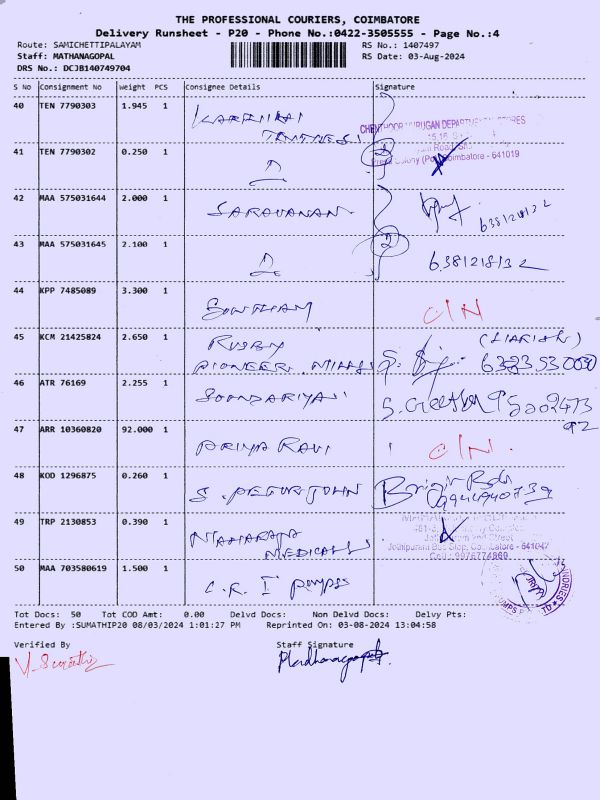 THE PROFESSIONAL COURIERS, COIMBATORE
Delivery Runsheet - P20 - Phone No.:0422-3505555 - Page No.:4
Route: SAMICHETTIPALAYAM RS No.: 1407497
Staff: MATHANAGOPAL RS Date: 03-Aug-2024
DRS No.: DCJB140749704
S No Consignment No Weight PCS Consignee Details Signature
40 TEN 7790303 1.945 1
STORES
41 TEN 7790302 0.250 1
Colony Coimbatore - 641019
42 MAA 575031644 2.000 1 SARAVANAN
43 MAA 575031645 2.100 1 2
6381218132
44 KPP 7485089 3.300 1 C/N
45 KCM 21425824 2.650 1 RUBBY
PIONEER MILLS
46 ATR 76169 2.255 1 SOUNDARIYA
47 ARR 10360820 92.000 1 PRIYA RAVI C/N.
48 KOD 1296875 0.260 1 S. PETER JOHN
49 TRP 2130853 0.390 1 MAHARAJA
MEDICALS
50 MAA 703580619 1.500 1 C.R.I Pumps
Tot Docs: 50 Tot COD Amt: 0.00 Delvd Docs: Non Delvd Docs: Delvy Pts:
Entered By :SUMATHIP20 08/03/2024 1:01:27 PM Reprinted On: 03-08-2024 13:04:58
Verified By Staff Signature